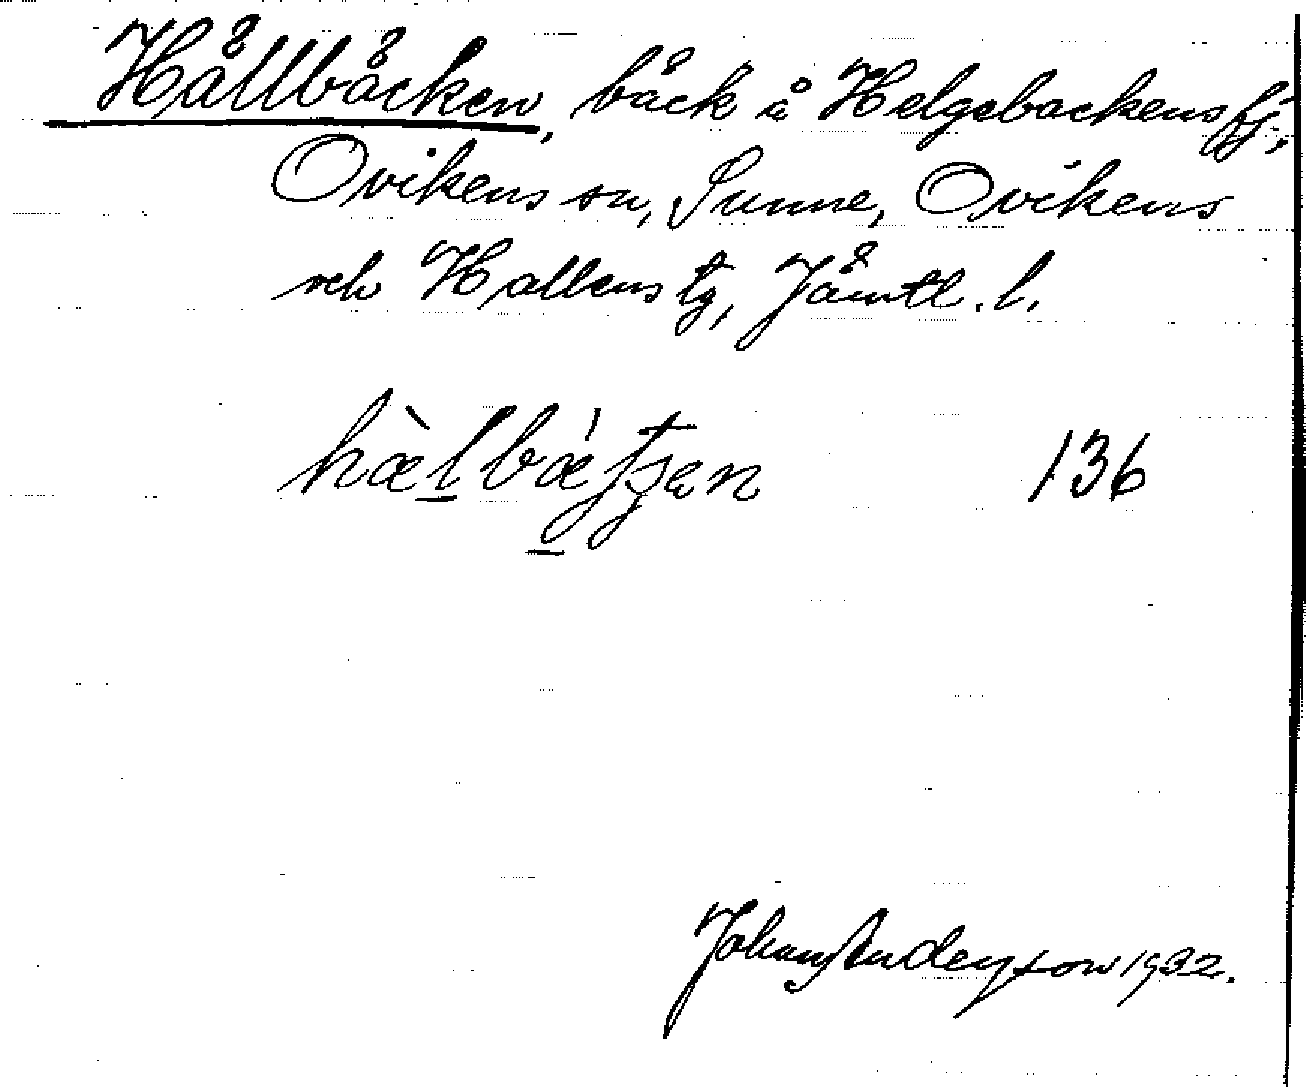 Hällbäcken, bäck å Helgebackens fj.,
Ovikens sn, Sunne, Ovikens
och Hallens tg, Jämtl. l.
136
Johan Andersson 1932.